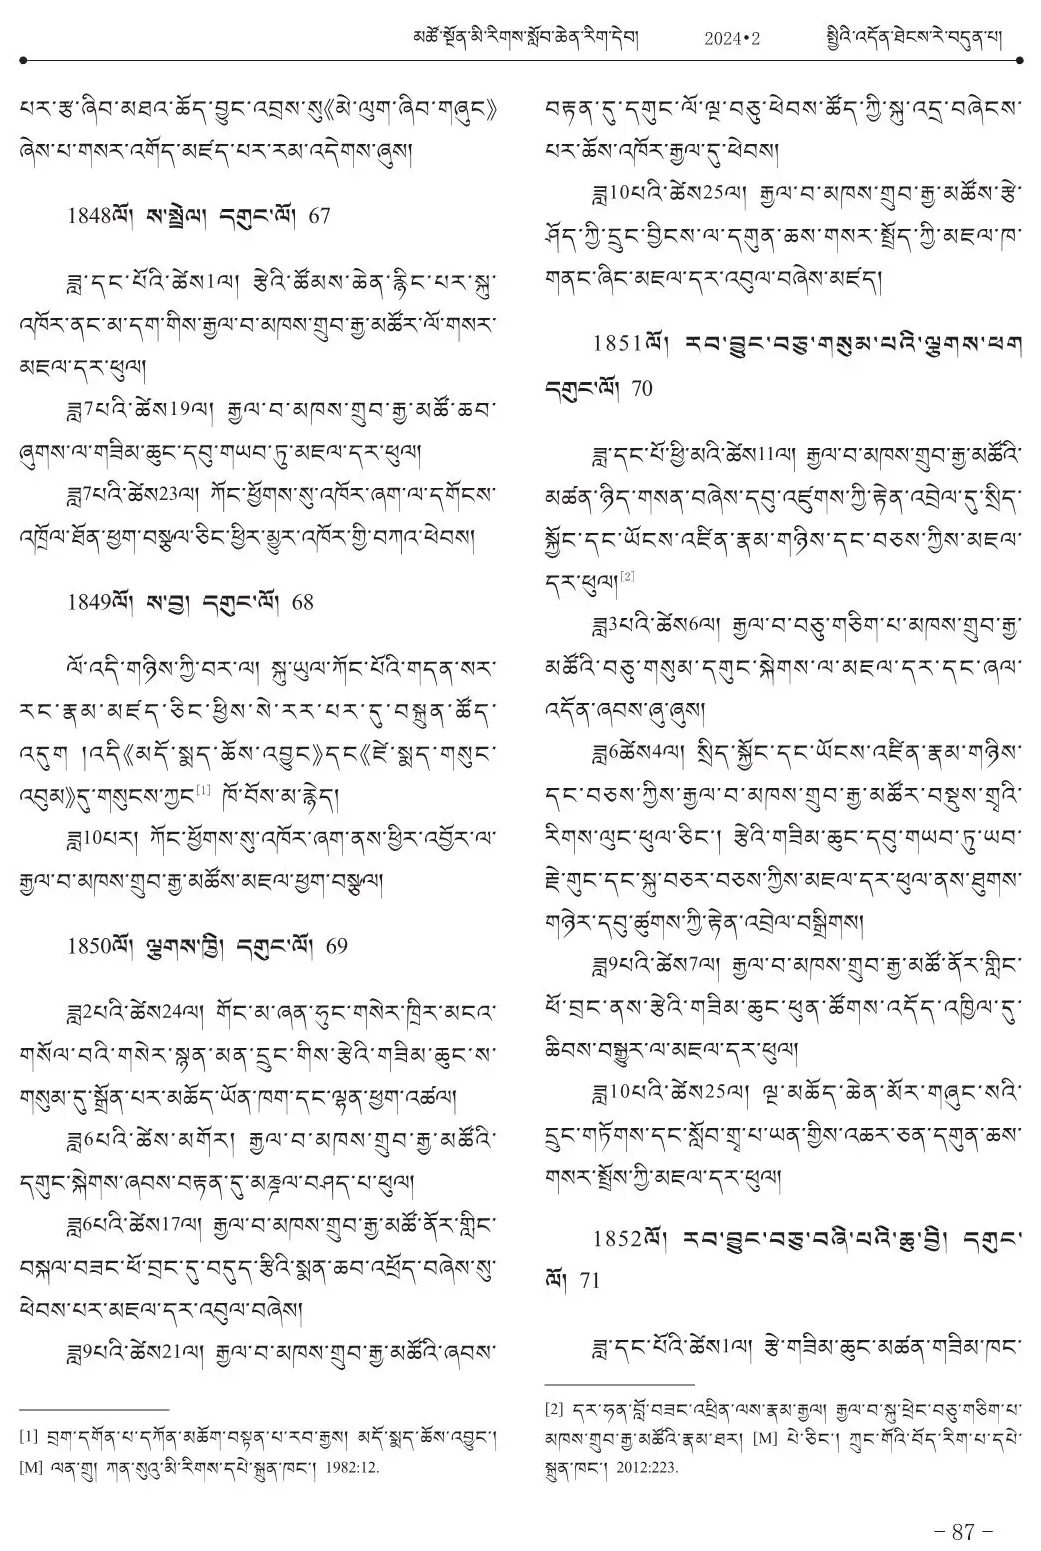 མཚོ་སྔོན་མི་རིགས་སློབ་ཆེན་རིག་དེབ། 2024•2 སྤྱིའི་འདོན་ཐེངས་རེ་བདུན་པ།
པར་རྩ་ཞིབ་མཐའ་ཆོད་བྱུང་འབྲས་སུ《མེ་ལུག་ཞིབ་གཞུང》
ཞེས་པ་གསར་འགོད་མཛད་པར་རམ་འདེགས་ཞུས།
1848ལོ། ས་སྤྲེལ། དགུང་ལོ། 67
ཟླ་དང་པོའི་ཚེས1ལ། རྩེའི་ཚོམས་ཆེན་རྙིང་པར་སྐུ་
འཁོར་ནང་མ་དག་གིས་རྒྱལ་བ་མཁས་གྲུབ་རྒྱ་མཚོར་ལོ་གསར་
མཇལ་དར་ཕུལ།
ཟླ7པའི་ཚེས19ལ། རྒྱལ་བ་མཁས་གྲུབ་རྒྱ་མཚོ་ཆབ་
ཞུགས་ལ་གཟིམ་ཆུང་དབུ་གཡབ་ཏུ་མཇལ་དར་ཕུལ།
ཟླ7པའི་ཚེས23ལ། ཀོང་ཕྱོགས་སུ་འཁོར་ཞག་ལ་དགོངས་
འཁྲོལ་ཐོན་ཕྱག་བསྩལ་ཅིང་ཕྱིར་མྱུར་འཁོར་གྱི་བཀའ་ཕེབས།
1849ལོ། ས་བྱ། དགུང་ལོ། 68
ལོ་འདི་གཉིས་ཀྱི་བར་ལ། སྐུ་ཡུལ་ཀོང་པོའི་གདན་སར་
རང་རྣམ་མཛད་ཅིང་ཕྱིས་སེ་རར་པར་དུ་བསྐྲུན་ཚོད་
འདུག །འདི《མདོ་སྨད་ཆོས་འབྱུང》དང《ཇེ་སྨད་གསུང་
འབུམ》དུ་གསུངས་ཀྱང[1] ཁོ་བོས་མ་རྙེད།
ཟླ10པར། ཀོང་ཕྱོགས་སུ་འཁོར་ཞག་ནས་ཕྱིར་འབྱོར་ལ་
རྒྱལ་བ་མཁས་གྲུབ་རྒྱ་མཚོས་མཇལ་ཕྱག་བསྩལ།
1850ལོ། ལྕགས་ཁྱི། དགུང་ལོ། 69
ཟླ2པའི་ཚེས24ལ། གོང་མ་ཞན་ཧྲུང་གསེར་ཁྲིར་མངའ་
གསོལ་བའི་གསེར་སྙན་མན་དྲུང་གིས་རྩེའི་གཟིམ་ཆུང་ས་
གསུམ་དུ་སྒྲོན་པར་མཆོད་ཡོན་ཁག་དང་ལྷན་ཕྱག་འཚལ།
ཟླ6པའི་ཚེས་མགོར། རྒྱལ་བ་མཁས་གྲུབ་རྒྱ་མཚོའི་
དགུང་སྐེགས་ཞབས་བརྟན་དུ་མཎྜལ་བཤད་པ་ཕུལ།
ཟླ6པའི་ཚེས17ལ། རྒྱལ་བ་མཁས་གྲུབ་རྒྱ་མཚོ་ནོར་གླིང་
བསྐལ་བཟང་ཕོ་བྲང་དུ་བདུད་རྩིའི་སྨན་ཆབ་འཕྲོད་བཞེས་སུ་
ཕེབས་པར་མཇལ་དར་འབུལ་བཞེས།
ཟླ9པའི་ཚེས21ལ། རྒྱལ་བ་མཁས་གྲུབ་རྒྱ་མཚོའི་ཞབས་
[1] བྲག་དགོན་པ་དཀོན་མཆོག་བསྟན་པ་རབ་རྒྱས། མདོ་སྨད་ཆོས་འབྱུང་།
[M] ལན་གྲུ། ཀན་སུའུ་མི་རིགས་དཔེ་སྐྲུན་ཁང་། 1982:12.
བརྟན་དུ་དགུང་ལོ་ལྔ་བཅུ་ཕེབས་ཚོད་ཀྱི་སྐུ་འདྲ་བཞེངས་
པར་ཆོས་འཁོར་རྒྱལ་དུ་ཕེབས།
ཟླ10པའི་ཚེས25ལ། རྒྱལ་བ་མཁས་གྲུབ་རྒྱ་མཚོས་རྩེ་
ཤོད་ཀྱི་དྲུང་བྱིངས་ལ་དགུན་ཆས་གསར་སྤྲོད་ཀྱི་མཇལ་ཁ་
གནང་ཞིང་མཇལ་དར་འབུལ་བཞེས་མཛད།
1851ལོ། རབ་བྱུང་བཅུ་གསུམ་པའི་ལྕགས་ཕག
དགུང་ལོ། 70
ཟླ་དང་པོ་ཕྱི་མའི་ཚེས11ལ། རྒྱལ་བ་མཁས་གྲུབ་རྒྱ་མཚོའི་
མཚན་ཉིད་གསན་བཞེས་དབུ་འཛུགས་ཀྱི་རྟེན་འབྲེལ་དུ་སྲིད་
སྐྱོང་དང་ཡོངས་འཛིན་རྣམ་གཉིས་དང་བཅས་ཀྱིས་མཇལ་
དར་ཕུལ།[2]
ཟླ3པའི་ཚེས6ལ། རྒྱལ་བ་བཅུ་གཅིག་པ་མཁས་གྲུབ་རྒྱ་
མཚོའི་བཅུ་གསུམ་དགུང་སྐེགས་ལ་མཇལ་དར་དང་ཞལ་
འདོན་ཞབས་ཞུ་ཞུས།
ཟླ6ཚེས4ལ། སྲིད་སྐྱོང་དང་ཡོངས་འཛིན་རྣམ་གཉིས་
དང་བཅས་ཀྱིས་རྒྱལ་བ་མཁས་གྲུབ་རྒྱ་མཚོར་བསྡུས་གྲྭའི་
རིགས་ལུང་ཕུལ་ཅིང་། རྩེའི་གཟིམ་ཆུང་དབུ་གཡབ་ཏུ་ཡབ་
རྗེ་གུང་དང་སྐུ་བཅར་བཅས་ཀྱིས་མཇལ་དར་ཕུལ་ནས་ཐུགས་
གཉེར་དབུ་ཚུགས་ཀྱི་རྟེན་འབྲེལ་བསྒྲིགས།
ཟླ9པའི་ཚེས7ལ། རྒྱལ་བ་མཁས་གྲུབ་རྒྱ་མཚོ་ནོར་གླིང་
ཕོ་བྲང་ནས་རྩེའི་གཟིམ་ཆུང་ཕུན་ཚོགས་འདོད་འཁྱིལ་དུ་
ཆིབས་བསྒྱུར་ལ་མཇལ་དར་ཕུལ།
ཟླ10པའི་ཚེས25ལ། ལྔ་མཆོད་ཆེན་མོར་གཞུང་སའི་
དྲུང་གཏོགས་དང་སློབ་གྲྭ་པ་ཡན་གྱིས་འཆར་ཅན་དགུན་ཆས་
གསར་སྤྲོས་ཀྱི་མཇལ་དར་ཕུལ།
1852ལོ། རབ་བྱུང་བཅུ་བཞི་པའི་ཆུ་བྱི། དགུང་
ལོ། 71
ཟླ་དང་པོའི་ཚེས1ལ། རྩེ་གཟིམ་ཆུང་མཚན་གཟིམ་ཁང་
[2] དར་ཧན་བློ་བཟང་འཕྲིན་ལས་རྣམ་རྒྱལ། རྒྱལ་བ་སྐུ་ཕྲེང་བཅུ་གཅིག་པ་
མཁས་གྲུབ་རྒྱ་མཚོའི་རྣམ་ཐར། [M] པེ་ཅིང་། ཀྲུང་གོའི་བོད་རིག་པ་དཔེ་
སྐྲུན་ཁང་། 2012:223.
– 87 –